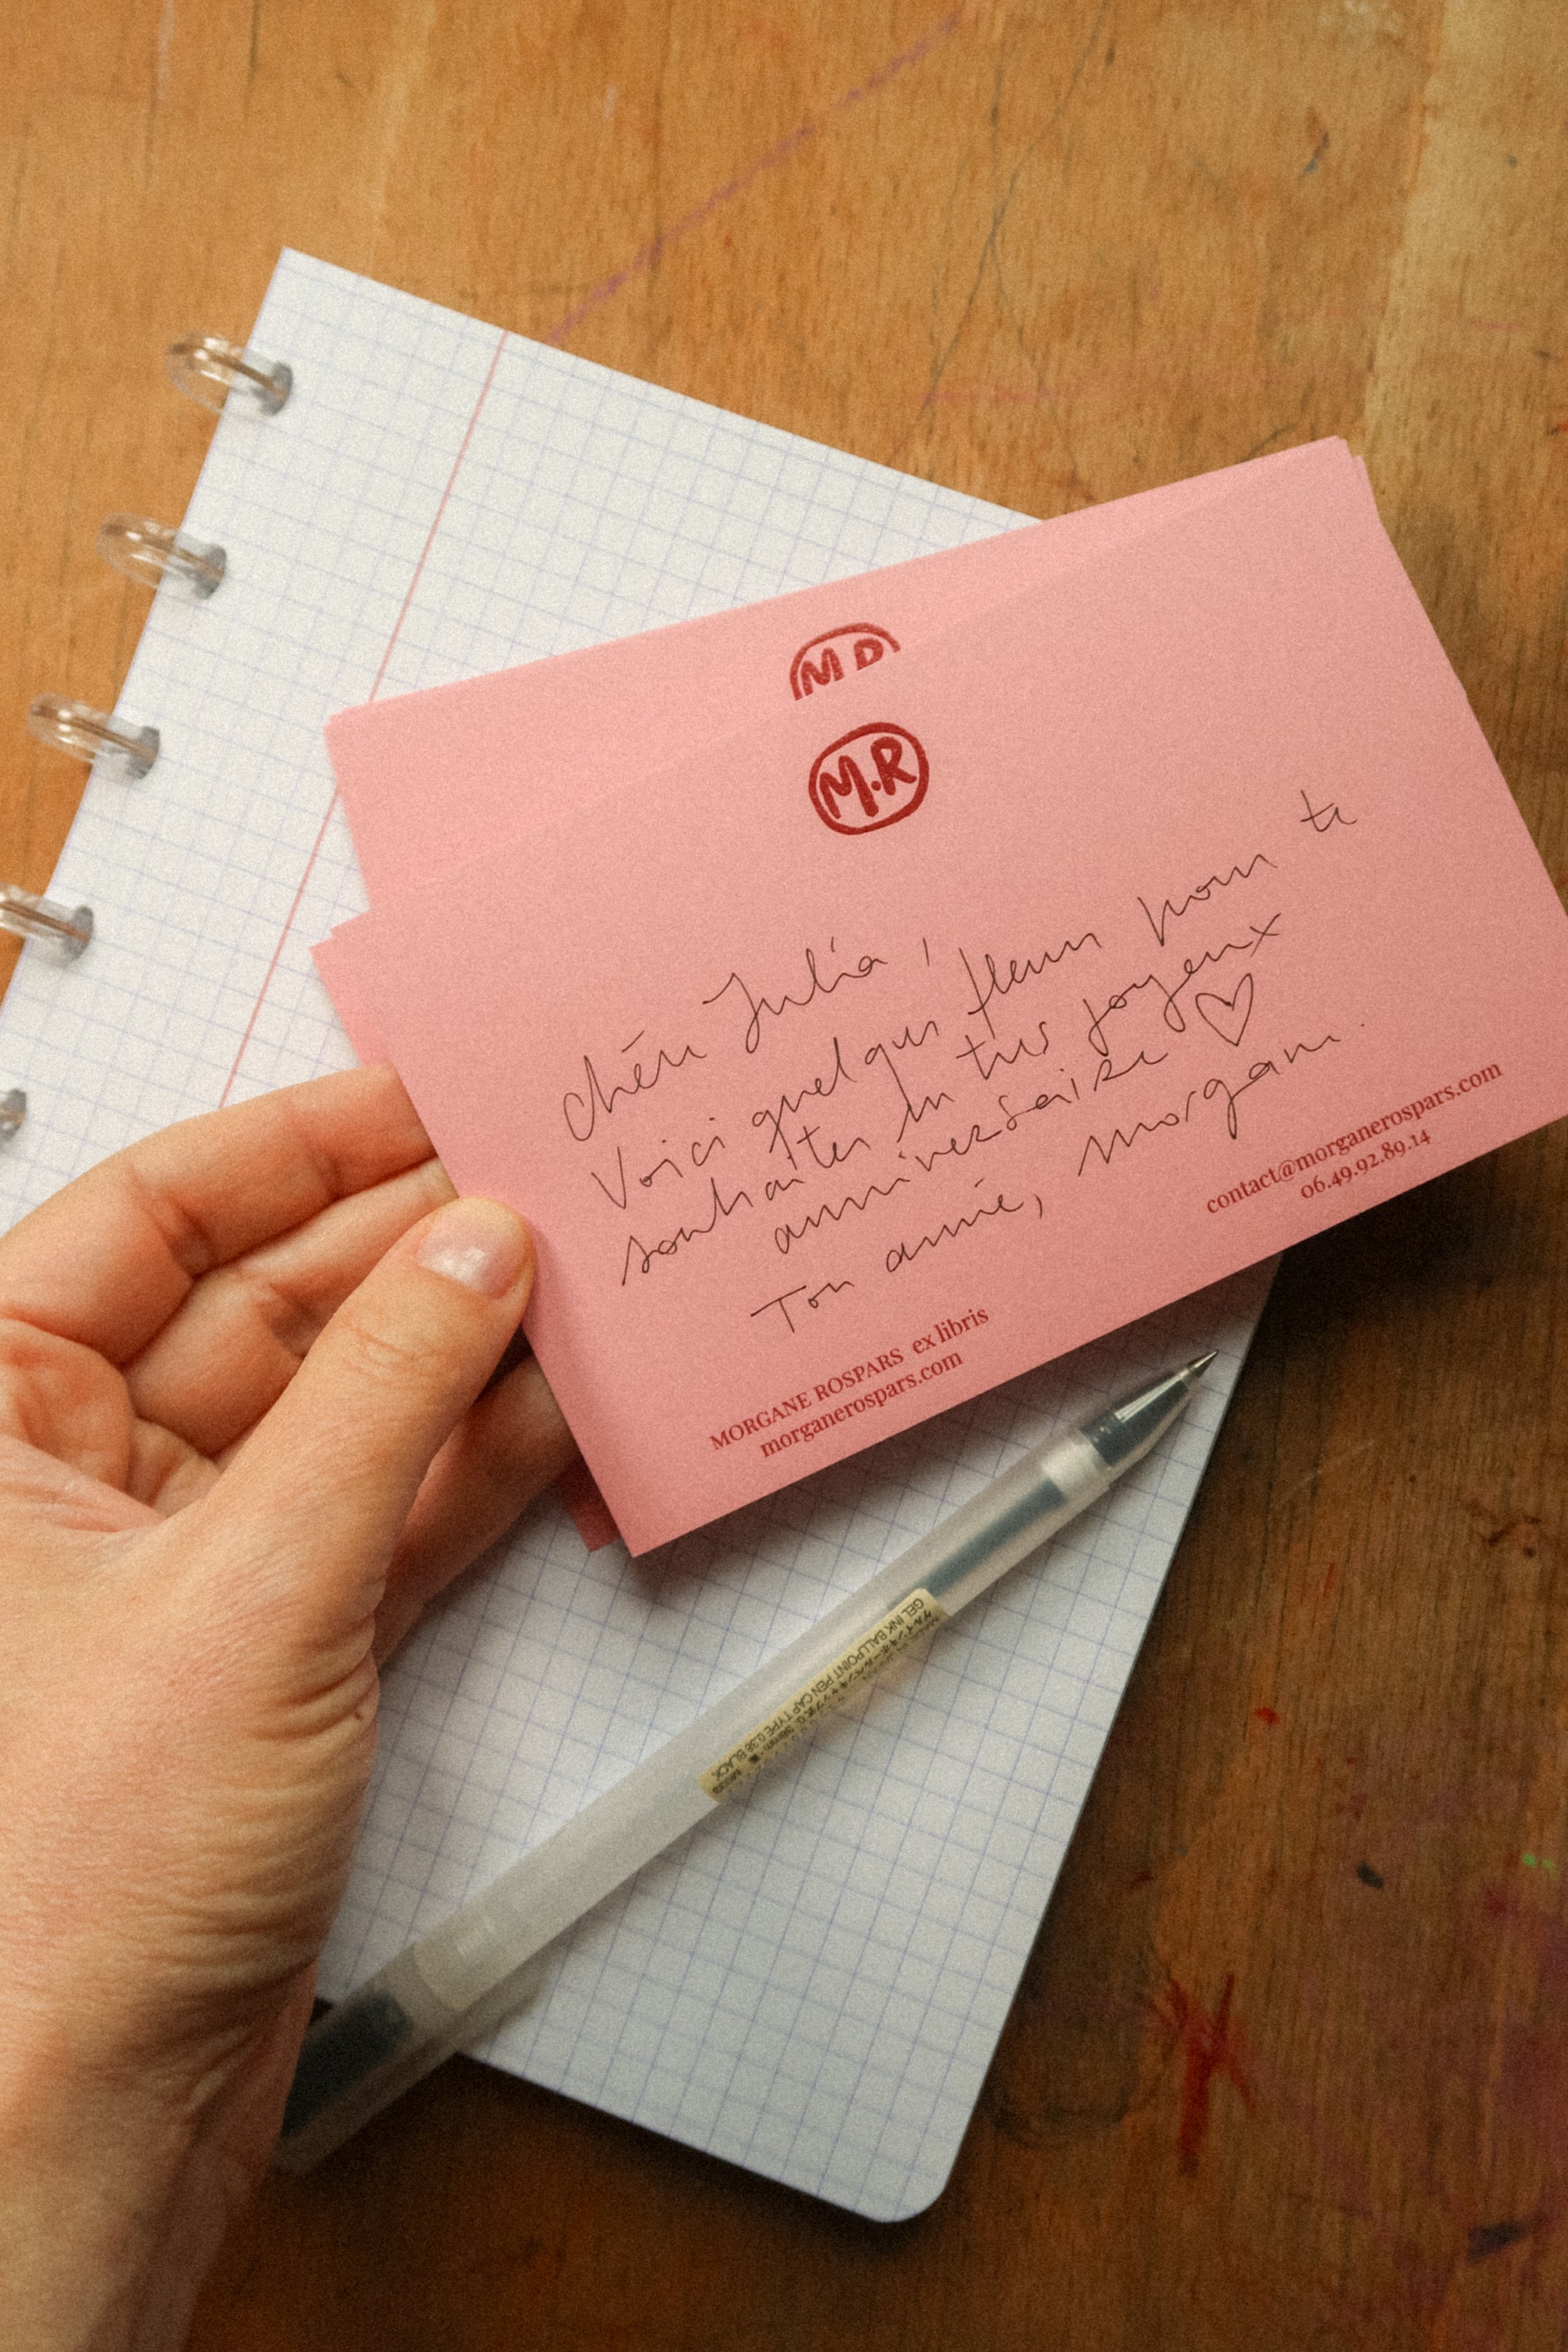 M R
M.R
Chère Julia,
Voici quelques fleurs pour te
souhaiter un très joyeux
anniversaire ♡
Ton amie, Morgane.
MORGANE ROSPARS ex libris
morganerospars.com
contact@morganerospars.com
06.49.92.89.14
GEL INK BALLPOINT PEN CAP TYPE 0.38 BLACK